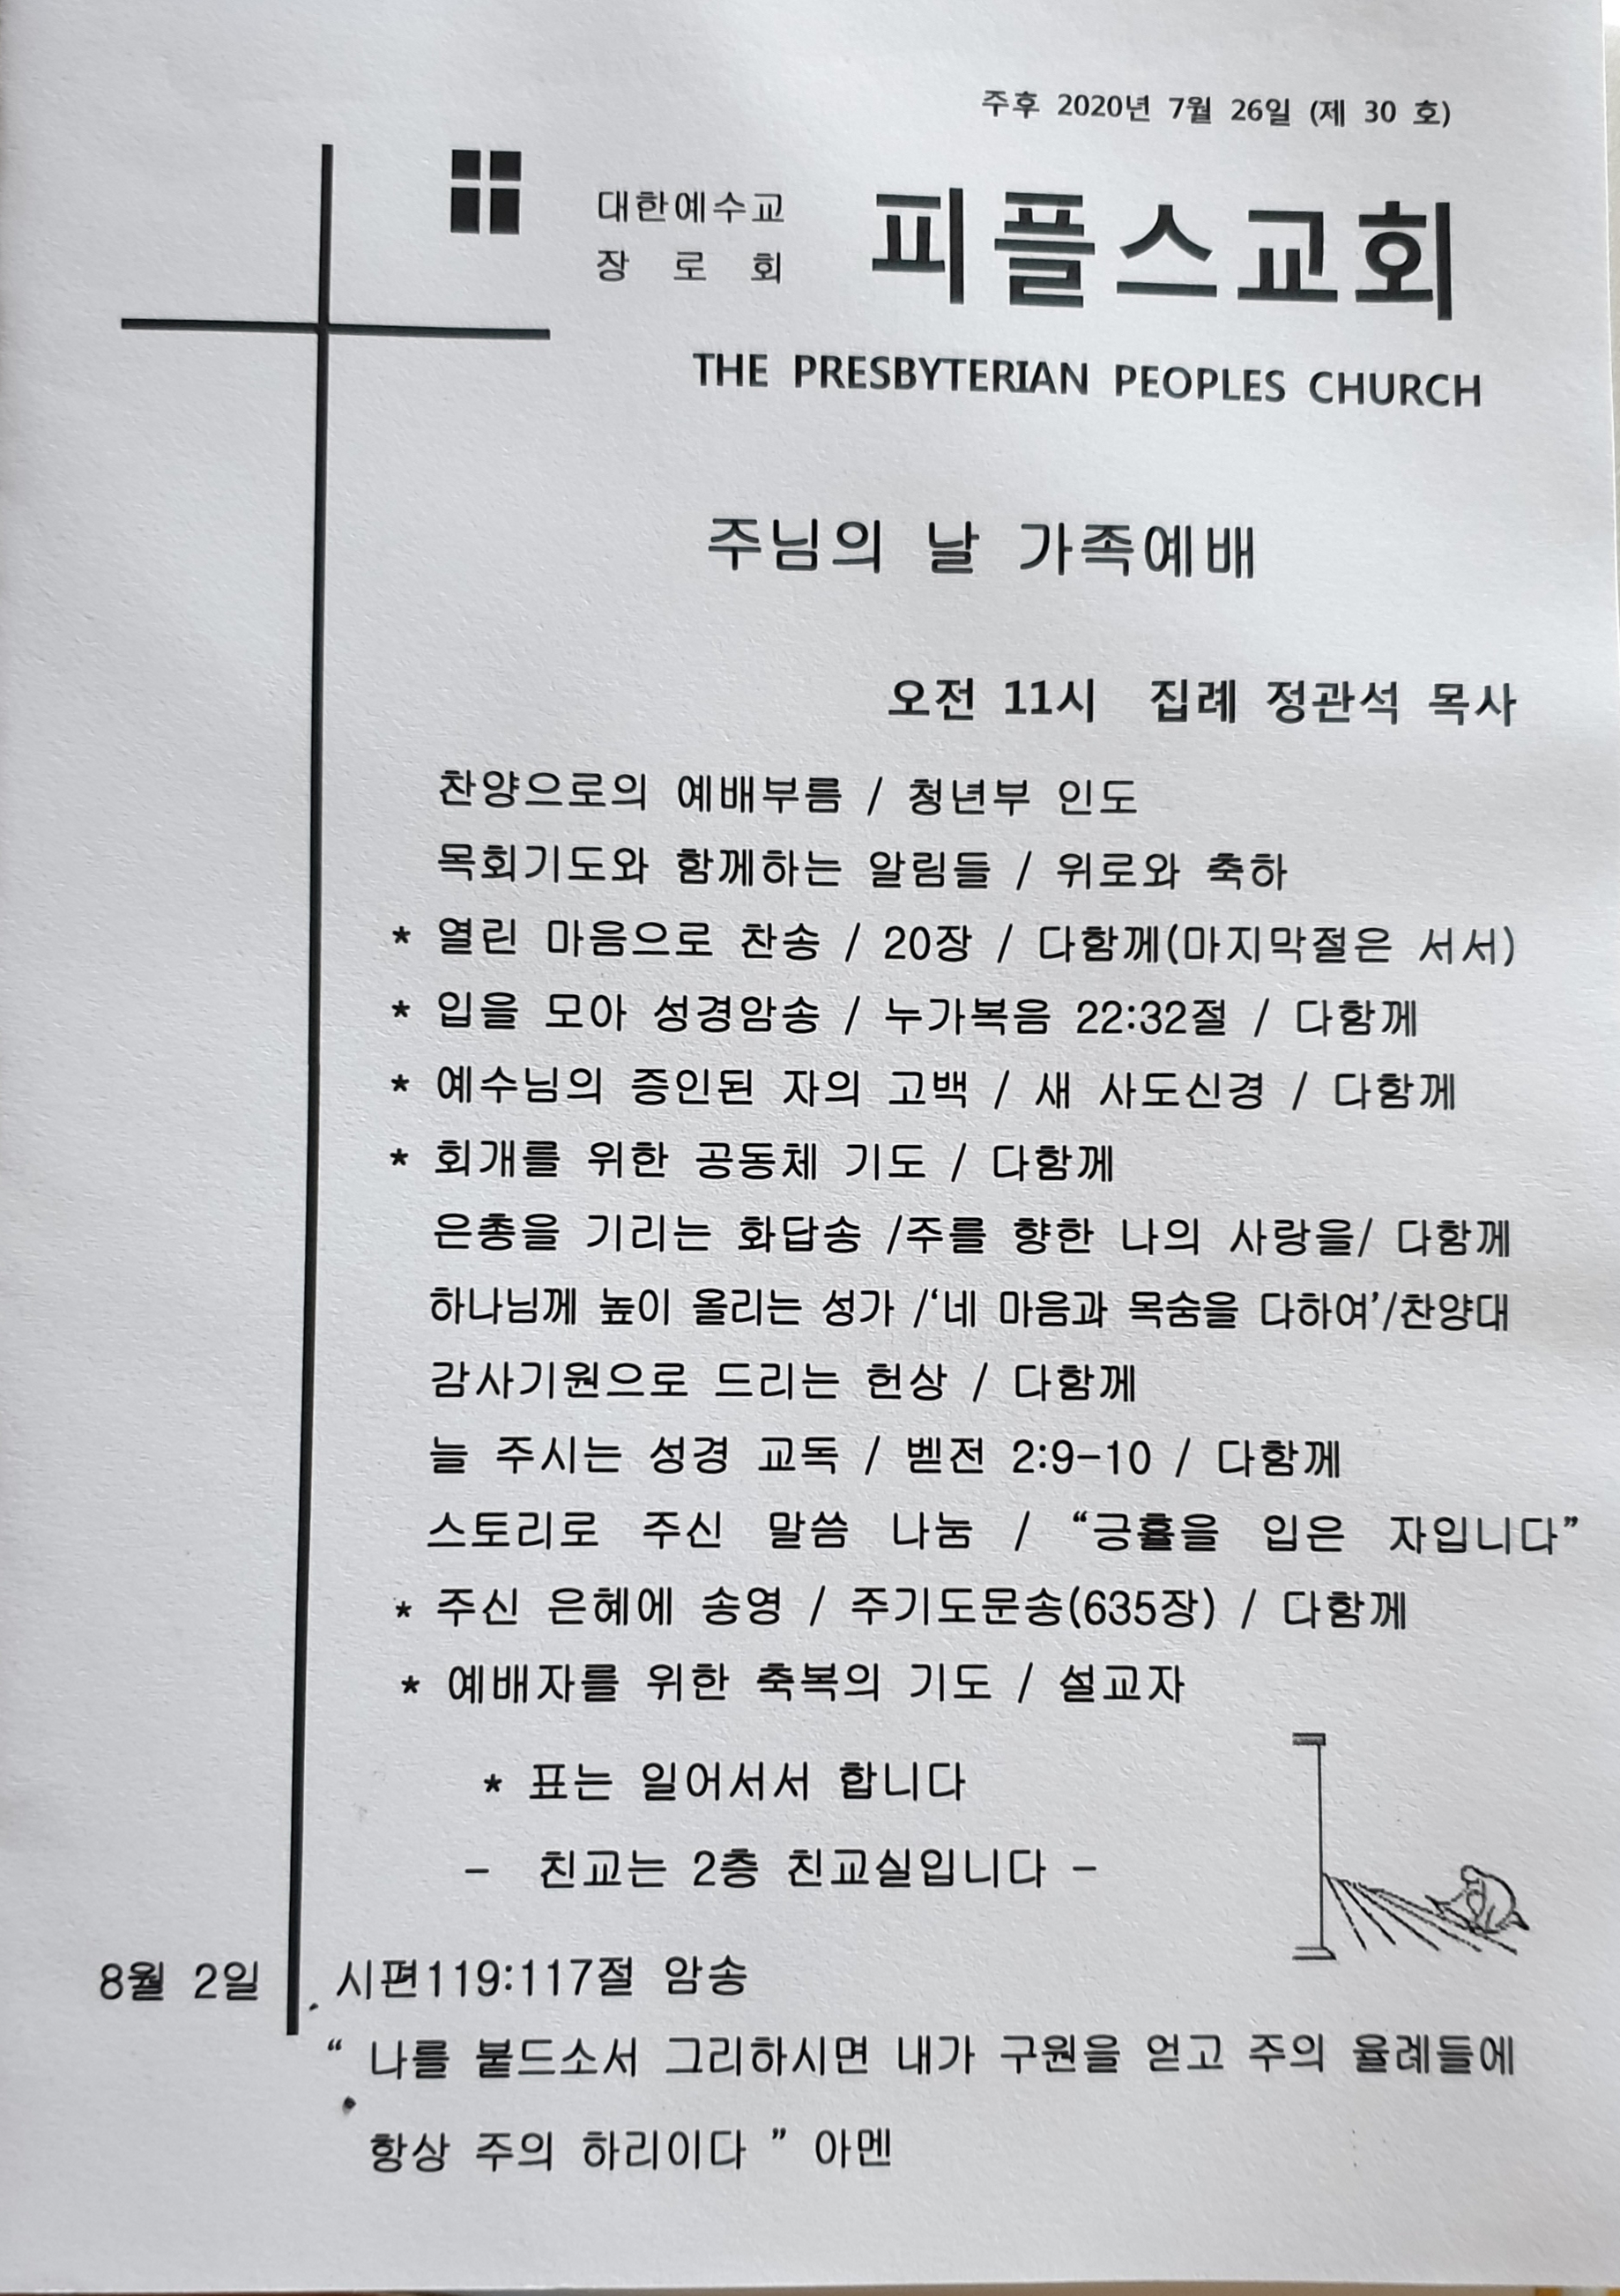 주후 2020년 7월 26일 (제 30 호)
대한예수교
장 로 회
피플스교회
THE PRESBYTERIAN PEOPLES CHURCH
주님의 날 가족예배
오전 11시 집례 정관석 목사
찬양으로의 예배부름 / 청년부 인도
목회기도와 함께하는 알림들 / 위로와 축하
* 열린 마음으로 찬송 / 20장 / 다함께(마지막절은 서서)
* 입을 모아 성경암송 / 누가복음 22:32절 / 다함께
* 예수님의 증인된 자의 고백 / 새 사도신경 / 다함께
* 회개를 위한 공동체 기도 / 다함께
은총을 기리는 화답송 /주를 향한 나의 사랑을/ 다함께
하나님께 높이 올리는 성가 /‘네 마음과 목숨을 다하여’/찬양대
감사기원으로 드리는 헌상 / 다함께
늘 주시는 성경 교독 / 벧전 2:9-10 / 다함께
스토리로 주신 말씀 나눔 / “긍휼을 입은 자입니다”
* 주신 은혜에 송영 / 주기도문송(635장) / 다함께
* 예배자를 위한 축복의 기도 / 설교자
* 표는 일어서서 합니다
- 친교는 2층 친교실입니다 -
8월 2일 시편119:117절 암송
“ 나를 붙드소서 그리하시면 내가 구원을 얻고 주의 율례들에
항상 주의 하리이다 ” 아멘